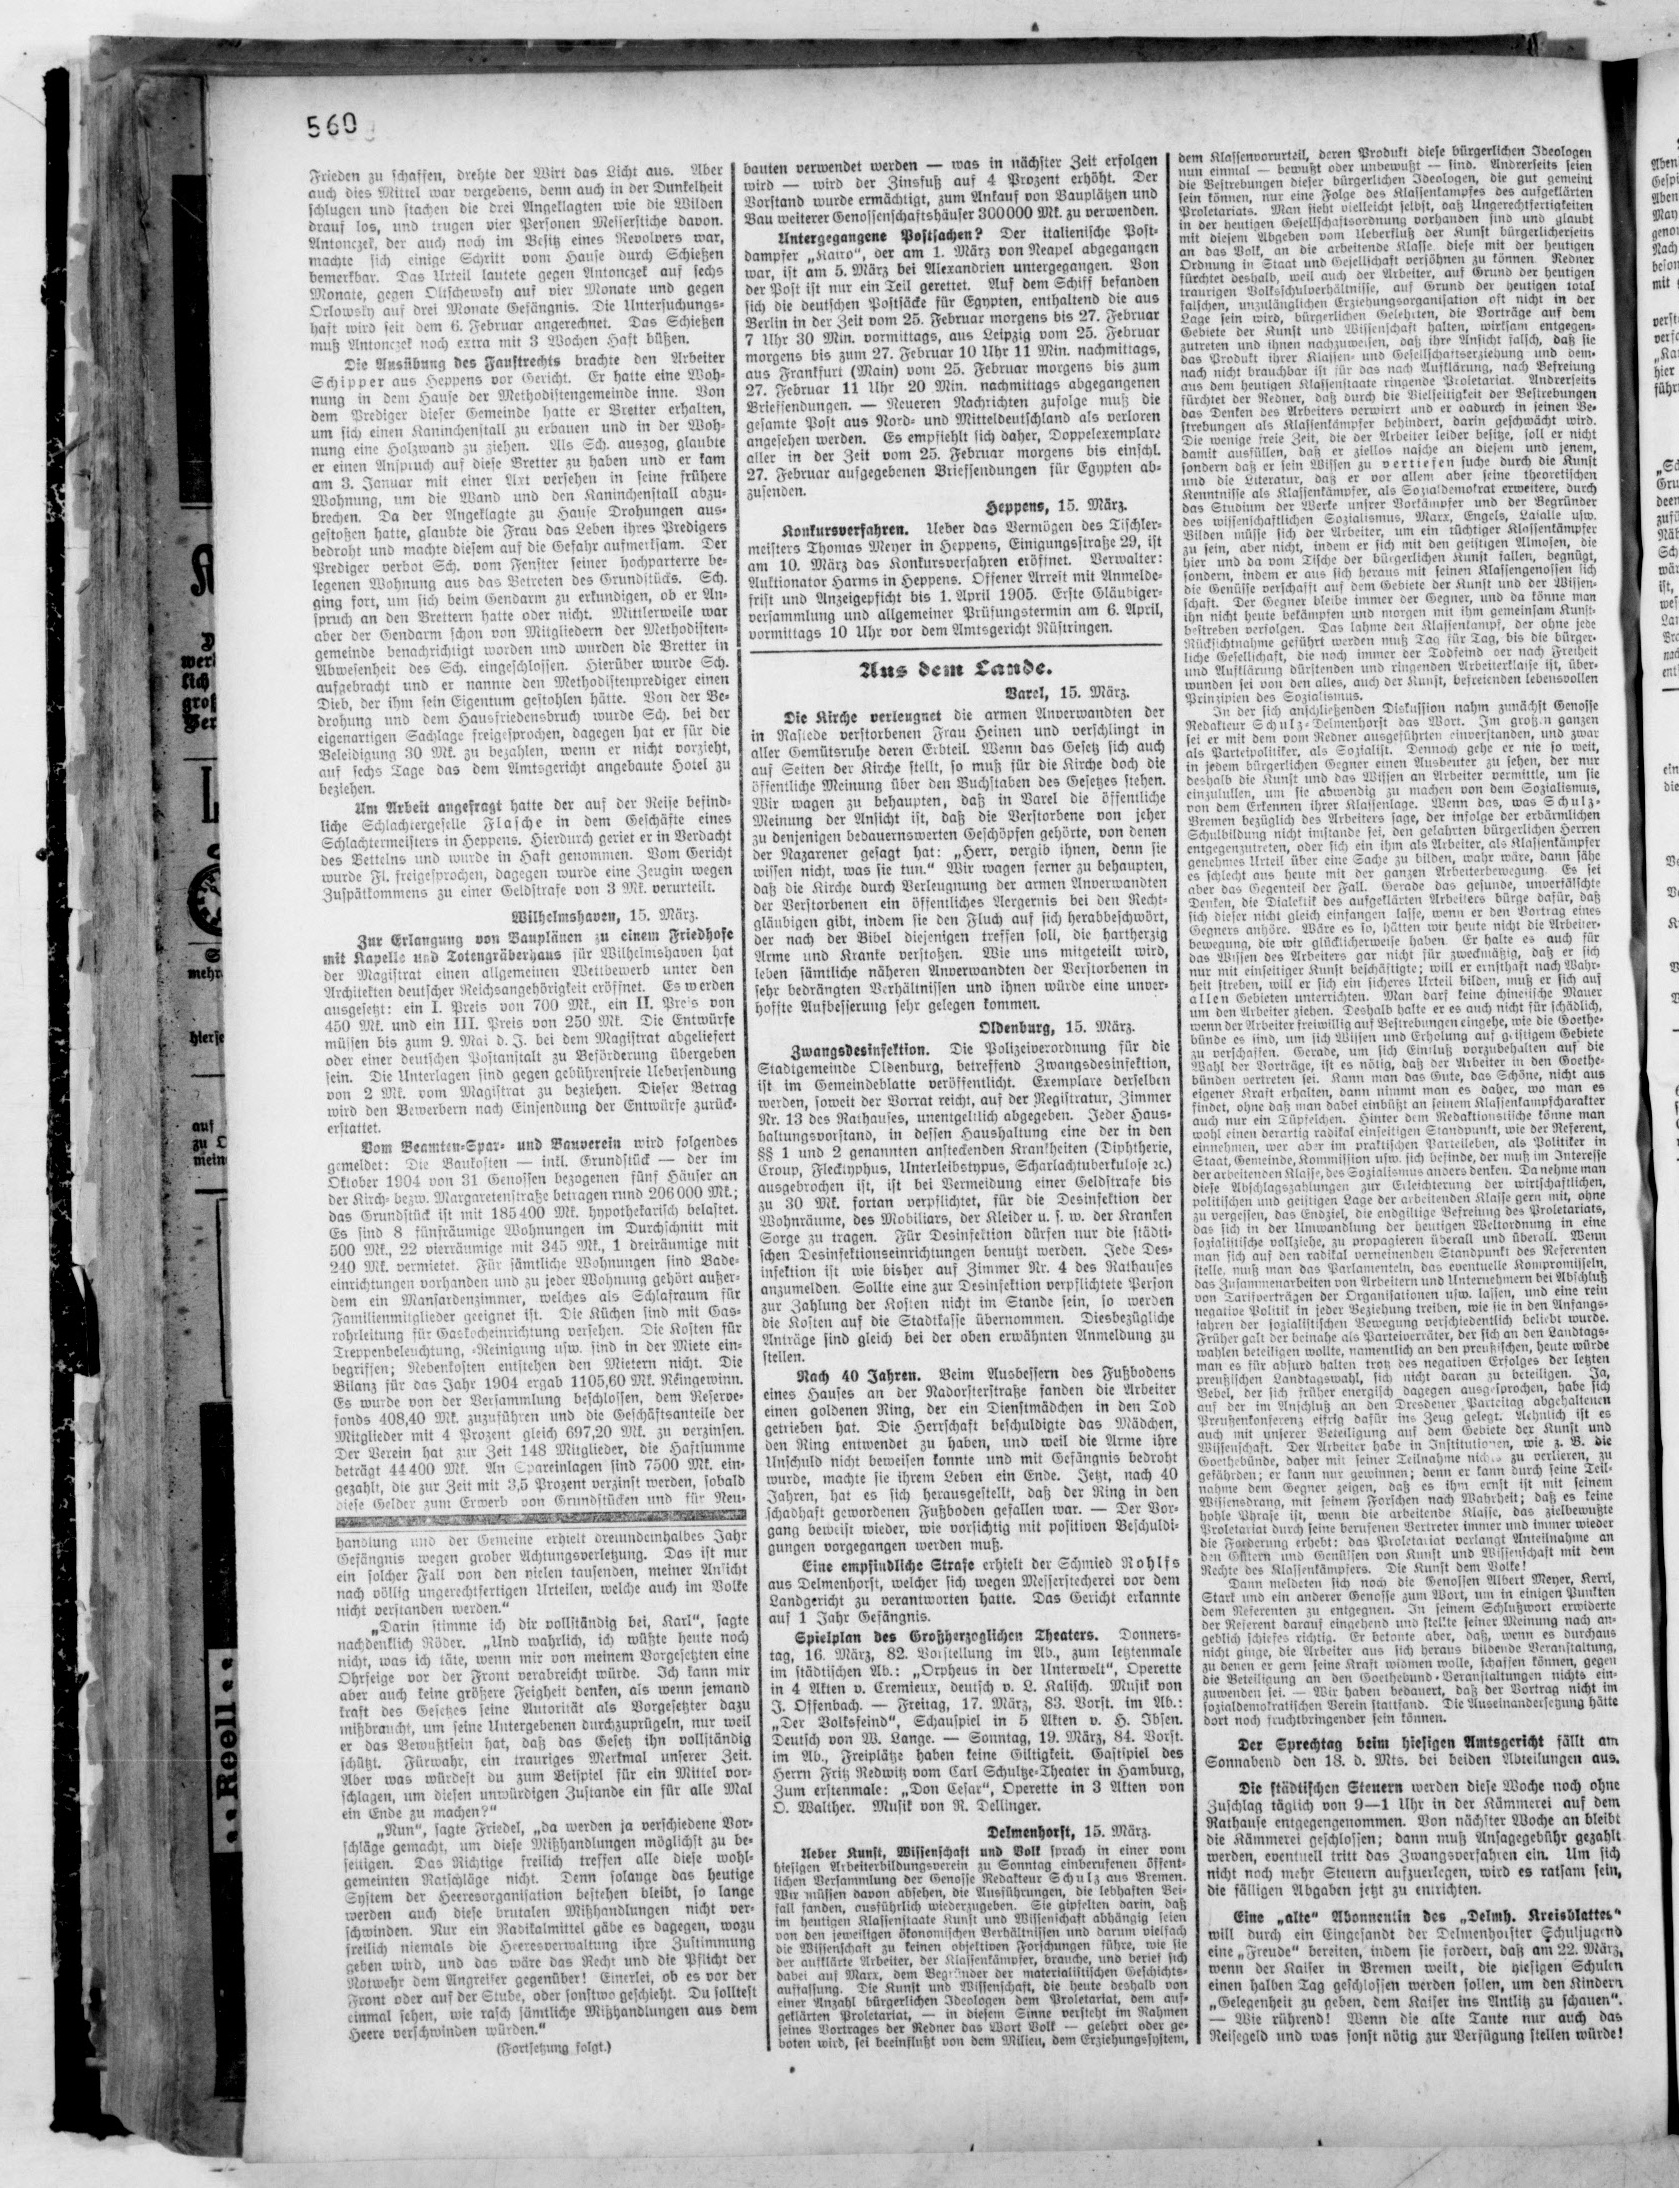 560
Frieden zu schaffen, drehte der Wirt das Licht aus. Aber
auch dies Mittel war vergebens, denn auch in der Dunkelheit
schlugen und stachen die drei Angeklagten wie die Wilden
drauf los, und trugen vier Personen Messerstiche davon.
Antonczek, der auch noch im Besitz eines Revolvers war,
machte sich einige Schritt vom Hause durch Schießen
bemerkbar. Das Urteil lautete gegen Antonczek auf sechs
Monate, gegen Oltschewsky auf vier Monate und gegen
Orlowsky auf drei Monate Gefängnis. Die Untersuchungs-
haft wird seit dem 6. Februar angerechnet. Das Schießen
muß Antonczek noch extra mit 3 Wochen Haft büßen.
Die Ausübung des Faustrechts brachte den Arbeiter
Schipper aus Heppens vor Gericht. Er hatte eine Woh-
nung in dem Hause der Methodistengemeinde inne. Von
dem Prediger dieser Gemeinde hatte er Bretter erhalten,
um sich einen Kaninchenstall zu erbauen und in der Woh-
nung eine Holzwand zu ziehen. Als Sch. auszog, glaubte
er einen Anspruch auf diese Bretter zu haben und er kam
am 3. Januar mit einer Axt versehen in seine frühere
Wohnung, um die Wand und den Kaninchenstall abzu-
brechen. Da der Angeklagte zu Hause Drohungen aus-
gestoßen hatte, glaubte die Frau das Leben ihres Predigers
bedroht und machte diesem auf die Gefahr aufmerksam. Der
Prediger verbot Sch. vom Fenster seiner hochparterre be-
legenen Wohnung aus das Betreten des Grundstücks. Sch.
ging fort, um sich beim Gendarm zu erkundigen, ob er An-
spruch an den Brettern hatte oder nicht. Mittlerweile war
aber der Gendarm schon von Mitgliedern der Methodisten-
gemeinde benachrichtigt worden und wurden die Bretter in
Abwesenheit des Sch. eingeschlossen. Hierüber wurde Sch.
aufgebracht und er nannte den Methodistenprediger einen
Dieb, der ihm sein Eigentum gestohlen hätte. Von der Be-
drohung und dem Hausfriedensbruch wurde Sch. bei der
eigenartigen Sachlage freigesprochen, dagegen hat er für die
Beleidigung 30 Mk. zu bezahlen, wenn er nicht vorzieht,
auf sechs Tage das dem Amtsgericht angebaute Hotel zu
beziehen.
Um Arbeit angefragt hatte der auf der Reise befind-
liche Schlachtergeselle Flasche in dem Geschäfte eines
Schlachtermeisters in Heppens. Hierdurch geriet er in Verdacht
des Bettelns und wurde in Haft genommen. Vom Gericht
wurde Fl. freigesprochen, dagegen wurde eine Zeugin wegen
Zuspätkommens zu einer Geldstrafe von 3 Mk. verurteilt.
Wilhelmshaven, 15. März.
Zur Erlangung von Bauplänen zu einem Friedhofe
mit Kapelle und Totengräberhaus für Wilhelmshaven hat
der Magistrat einen allgemeinen Wettbewerb unter den
Architekten deutscher Reichsangehörigkeit eröffnet. Es werden
ausgesetzt: ein I. Preis von 700 Mk., ein II. Preis von
450 Mk. und ein III. Preis von 250 Mk. Die Entwürfe
müssen bis zum 9. Mai d. J. bei dem Magistrat abgeliefert
oder einer deutschen Postanstalt zu Beförderung übergeben
sein. Die Unterlagen sind gegen gebührenfreie Uebersendung
von 2 Mk. vom Magistrat zu beziehen. Dieser Betrag
wird den Bewerbern nach Einsendung der Entwürfe zurück-
erstattet.
Vom Beamten-Spar- und Bauverein wird folgendes
gemeldet: Die Baukosten — inkl. Grundstück — der im
Oktober 1904 von 31 Genossen bezogenen fünf Häuser an
der Kirch- bezw. Margaretenstraße betragen rund 206 000 Mk.;
das Grundstück ist mit 185 400 Mk. hypothekarisch belastet.
Es sind 8 fünfräumige Wohnungen im Durchschnitt mit
500 Mk., 22 vierräumige mit 345 Mk., 1 dreiräumige mit
240 Mk. vermietet. Für sämtliche Wohnungen sind Bade-
einrichtungen vorhanden und zu jeder Wohnung gehört außer-
dem ein Mansardenzimmer, welches als Schlafraum für
Familienmitglieder geeignet ist. Die Küchen sind mit Gas-
rohrleitung für Gaskocheinrichtung versehen. Die Kosten für
Treppenbeleuchtung, -Reinigung usw. sind in der Miete ein-
begriffen; Nebenkosten entstehen den Mietern nicht. Die
Bilanz für das Jahr 1904 ergab 1105,60 Mk. Reingewinn.
Es wurde von der Versammlung beschlossen, dem Reserve-
fonds 408,40 Mk. zuzuführen und die Geschäftsanteile der
Mitglieder mit 4 Prozent gleich 697,20 Mk. zu verzinsen.
Der Verein hat zur Zeit 148 Mitglieder, die Haftsumme
beträgt 44 400 Mk. An Spareinlagen sind 7500 Mk. ein-
gezahlt, die zur Zeit mit 3,5 Prozent verzinst werden, sobald
diese Gelder zum Erwerb von Grundstücken und für Neu-
handlung und der Gemeine erhielt dreiundeinhalbes Jahr
Gefängnis wegen grober Achtungsverletzung. Das ist nur
ein solcher Fall von den vielen tausenden, meiner Ansicht
nach völlig ungerechtfertigen Urteilen, welche auch im Volke
nicht verstanden werden.“
„Darin stimme ich dir vollständig bei, Karl“, sagte
nachdenklich Röder. „Und wahrlich, ich wüßte heute noch
nicht, was ich täte, wenn mir von meinem Vorgesetzten eine
Ohrfeige vor der Front verabreicht würde. Ich kann mir
aber auch keine größere Feigheit denken, als wenn jemand
kraft des Gesetzes seine Autorität als Vorgesetzter dazu
mißbraucht, um seine Untergebenen durchzuprügeln, nur weil
er das Bewußtsein hat, daß das Gesetz ihn vollständig
schützt. Fürwahr, ein trauriges Merkmal unserer Zeit.
Aber was würdest du zum Beispiel für ein Mittel vor-
schlagen, um diesen unwürdigen Zustande ein für alle Mal
ein Ende zu machen?“
„Nun“, sagte Friedel, „da werden ja verschiedene Vor-
schläge gemacht, um diese Mißhandlungen möglichst zu be-
seitigen. Das Richtige freilich treffen alle diese wohl-
gemeinten Ratschläge nicht. Denn solange das heutige
System der Heeresorganisation bestehen bleibt, so lange
werden auch diese brutalen Mißhandlungen nicht ver-
schwinden. Nur ein Radikalmittel gäbe es dagegen, wozu
freilich niemals die Heeresverwaltung ihre Zustimmung
geben wird, und das wäre das Recht und die Pflicht der
Notwehr dem Angreifer gegenüber! Einerlei, ob es vor der
Front oder auf der Stube, oder sonstwo geschieht. Du solltest
einmal sehen, wie rasch sämtliche Mißhandlungen aus dem
Heere verschwinden würden.“
(Fortsetzung folgt.)
bauten verwendet werden — was in nächster Zeit erfolgen
wird — wird der Zinsfuß auf 4 Prozent erhöht. Der
Vorstand wurde ermächtigt, zum Ankauf von Bauplätzen und
Bau weiterer Genossenschaftshäuser 300 000 Mk. zu verwenden.
Untergegangene Postsachen? Der italienische Post-
dampfer „Kairo“, der am 1. März von Neapel abgegangen
war, ist am 5. März bei Alexandrien untergegangen. Von
der Post ist nur ein Teil gerettet. Auf dem Schiff befanden
sich die deutschen Postsäcke für Egypten, enthaltend die aus
Berlin in der Zeit vom 25. Februar morgens bis 27. Februar
7 Uhr 30 Min. vormittags, aus Leipzig vom 25. Februar
morgens bis zum 27. Februar 10 Uhr 11 Min. nachmittags,
aus Frankfurt (Main) vom 25. Februar morgens bis zum
27. Februar 11 Uhr 20 Min. nachmittags abgegangenen
Briefsendungen. — Neueren Nachrichten zufolge muß die
gesamte Post aus Nord- und Mitteldeutschland als verloren
angesehen werden. Es empfiehlt sich daher, Doppelexemplare
aller in der Zeit vom 25. Februar morgens bis einschl.
27. Februar aufgegebenen Briefsendungen für Egypten ab-
zusenden.
Heppens, 15. März.
Konkursverfahren. Ueber das Vermögen des Tischler-
meisters Thomas Meyer in Heppens, Einigungsstraße 29, ist
am 10. März das Konkursverfahren eröffnet. Verwalter:
Auktionator Harms in Heppens. Offener Arrest mit Anmelde-
frist und Anzeigepflicht bis 1. April 1905. Erste Gläubiger-
versammlung und allgemeiner Prüfungstermin am 6. April,
vormittags 10 Uhr vor dem Amtsgericht Rüstringen.
Aus dem Lande.
Varel, 15. März.
Die Kirche verleugnet die armen Anverwandten der
in Rastede verstorbenen Frau Heinen und verschlingt in
aller Gemütsruhe deren Erbteil. Wenn das Gesetz sich auch
auf Seiten der Kirche stellt, so muß für die Kirche doch die
öffentliche Meinung über den Buchstaben des Gesetzes stehen.
Wir wagen zu behaupten, daß in Varel die öffentliche
Meinung der Ansicht ist, daß die Verstorbene von jeher
zu denjenigen bedauernswerten Geschöpfen gehörte, von denen
der Nazarener gesagt hat: „Herr, vergib ihnen, denn sie
wissen nicht, was sie tun.“ Wir wagen ferner zu behaupten,
daß die Kirche durch Verleugnung der armen Anverwandten
der Verstorbenen ein öffentliches Aergernis bei den Recht-
gläubigen gibt, indem sie den Fluch auf sich herabbeschwört,
der nach der Bibel diejenigen treffen soll, die hartherzig
Arme und Kranke verstoßen. Wie uns mitgeteilt wird,
leben sämtliche näheren Anverwandten der Verstorbenen in
sehr bedrängten Verhältnissen und ihnen würde eine unver-
hoffte Aufbesserung sehr gelegen kommen.
Oldenburg, 15. März.
Zwangsdesinfektion. Die Polizeiverordnung für die
Stadtgemeinde Oldenburg, betreffend Zwangsdesinfektion,
ist im Gemeindeblatte veröffentlicht. Exemplare derselben
werden, soweit der Vorrat reicht, auf der Registratur, Zimmer
Nr. 13 des Rathauses, unentgeltlich abgegeben. Jeder Haus-
haltungsvorstand, in dessen Haushaltung eine der in den
§§ 1 und 2 genannten ansteckenden Krankheiten (Diphtherie,
Croup, Flecktyphus, Unterleibstypus, Scharlachtuberkulose ꝛc.)
ausgebrochen ist, ist bei Vermeidung einer Geldstrafe bis
zu 30 Mk. fortan verpflichtet, für die Desinfektion der
Wohnräume, des Mobiliars, der Kleider u. s. w. der Kranken
Sorge zu tragen. Für Desinfektion dürfen nur die städti-
schen Desinfektionseinrichtungen benutzt werden. Jede Des-
infektion ist wie bisher auf Zimmer Nr. 4 des Rathauses
anzumelden. Sollte eine zur Desinfektion verpflichtete Person
zur Zahlung der Kosten nicht im Stande sein, so werden
die Kosten auf die Stadtkasse übernommen. Diesbezügliche
Anträge sind gleich bei der oben erwähnten Anmeldung zu
stellen.
Nach 40 Jahren. Beim Ausbessern des Fußbodens
eines Hauses an der Nadorsterstraße fanden die Arbeiter
einen goldenen Ring, der ein Dienstmädchen in den Tod
getrieben hat. Die Herrschaft beschuldigte das Mädchen,
den Ring entwendet zu haben, und weil die Arme ihre
Unschuld nicht beweisen konnte und mit Gefängnis bedroht
wurde, machte sie ihrem Leben ein Ende. Jetzt, nach 40
Jahren, hat es sich herausgestellt, daß der Ring in den
schadhaft gewordenen Fußboden gefallen war. — Der Vor-
gang beweist wieder, wie vorsichtig mit positiven Beschuldi-
gungen vorgegangen werden muß.
Eine empfindliche Strafe erhielt der Schmied Rohlfs
aus Delmenhorst, welcher sich wegen Messerstecherei vor dem
Landgericht zu verantworten hatte. Das Gericht erkannte
auf 1 Jahr Gefängnis.
Spielplan des Großherzoglichen Theaters. Donners-
tag, 16. März, 82. Vorstellung im Ab., zum letztenmale
im städtischen Ab.: „Orpheus in der Unterwelt“, Operette
in 4 Akten v. Cremieux, deutsch v. L. Kalisch. Musik von
J. Offenbach. — Freitag, 17. März, 83. Vorst. im Ab.:
„Der Volksfeind“, Schauspiel in 5 Akten v. H. Ibsen.
Deutsch von W. Lange. — Sonntag, 19. März, 84. Vorst.
im Ab., Freiplätze haben keine Giltigkeit. Gastspiel des
Herrn Fritz Redwitz vom Carl Schultze-Theater in Hamburg,
Zum erstenmale: „Don Cesar“, Operette in 3 Akten von
O. Walther. Musik von R. Dellinger.
Delmenhorst, 15. März.
Ueber Kunst, Wissenschaft und Volk sprach in einer vom
hiesigen Arbeiterbildungsverein zu Sonntag einberufenen öffent-
lichen Versammlung der Genosse Redakteur Schulz aus Bremen.
Wir müssen davon absehen, die Ausführungen, die lebhaften Bei-
fall fanden, ausführlich wiederzugeben. Sie gipfelten darin, daß
im heutigen Klassenstaate Kunst und Wissenschaft abhängig seien
von den jeweiligen ökonomischen Verhältnissen und darum vielfach
die Wissenschaft zu keinen objektiven Forschungen führe, wie sie
der aufklärte Arbeiter, der Klassenkämpfer, brauche, und berief sich
dabei auf Marx, dem Begründer der materialistischen Geschichts-
auffassung. Die Kunst und Wissenschaft, die heute deshalb von
einer Anzahl bürgerlichen Ideologen dem Proletariat, dem auf-
geklärten Proletariat, — in diesem Sinne versteht im Rahmen
seines Vortrages der Redner das Wort Volk — gelehrt oder ge-
boten wird, sei beeinflußt von dem Milieu, dem Erziehungssystem,
dem Klassenvorurteil, deren Produkt diese bürgerlichen Ideologen
nun einmal — bewußt oder unbewußt — sind. Andrerseits seien
die Bestrebungen dieser bürgerlichen Ideologen, die gut gemeint
sein können, nur eine Folge des Klassenkampfes des aufgeklärten
Proletariats. Man sieht vielleicht selbst, daß Ungerechtfertigkeiten
in der heutigen Gesellschaftsordnung vorhanden sind und glaubt
mit diesem Abgeben vom Ueberfluß der Kunst bürgerlicherseits
an das Volk, an die arbeitende Klasse, diese mit der heutigen
Ordnung in Staat und Gesellschaft versöhnen zu können. Redner
fürchtet deshalb, weil auch der Arbeiter, auf Grund der heutigen
traurigen Volksschulverhältnisse, auf Grund der heutigen total
falschen, unzulänglichen Erziehungsorganisation oft nicht in der
Lage sein wird, bürgerlichen Gelehrten, die Vorträge auf dem
Gebiete der Kunst und Wissenschaft halten, wirksam entgegen-
zutreten und ihnen nachzuweisen, daß ihre Ansicht falsch, daß sie
das Produkt ihrer Klassen- und Gesellschaftserziehung und dem-
nach nicht brauchbar ist für das nach Aufklärung, nach Befreiung
aus dem heutigen Klassenstaate ringende Proletariat. Andrerseits
fürchtet der Redner, daß durch die Vielseitigkeit der Bestrebungen
das Denken des Arbeiters verwirrt und er dadurch in seinen Be-
strebungen als Klassenkämpfer behindert, darin geschwächt wird.
Die wenige freie Zeit, die der Arbeiter leider besitze, soll er nicht
damit ausfüllen, daß er ziellos nasche an diesem und jenem,
sondern daß er sein Wissen zu vertiefen suche durch die Kunst
und die Literatur, daß er vor allem aber seine theoretischen
Kenntnisse als Klassenkämpfer, als Sozialdemokrat erweitere, durch
das Studium der Werke unsrer Vorkämpfer und der Begründer
des wissenschaftlichen Sozialismus, Marx, Engels, Lassalle usw.
Bilden müsse sich der Arbeiter, um ein tüchtiger Klassenkämpfer
zu sein, aber nicht, indem er sich mit den geistigen Almosen, die
hier und da vom Tische der bürgerlichen Kunst fallen, begnügt,
sondern, indem er aus sich heraus mit seinen Klassengenossen sich
die Genüsse verschafft auf dem Gebiete der Kunst und der Wissen-
schaft. Der Gegner bleibe immer der Gegner, und da könne man
ihn nicht heute bekämpfen und morgen mit ihm gemeinsam Kunst-
bestreben verfolgen. Das lahme den Klassenkampf, der ohne jede
Rücksichtnahme geführt werden muß Tag für Tag, bis die bürger-
liche Gesellschaft, die noch immer der Todfeind der nach Freiheit
und Aufklärung dürstenden und ringenden Arbeiterklasse ist, über-
wunden sei von den alles, auch der Kunst, befreienden lebensvollen
Prinzipien des Sozialismus.
In der sich anschließenden Diskussion nahm zunächst Genosse
Redakteur Schulz-Delmenhorst das Wort. Im großen ganzen
sei er mit dem vom Redner ausgeführten einverstanden, und zwar
als Parteipolitiker, als Sozialist. Dennoch gehe er nie so weit,
in jedem bürgerlichen Gegner einen Ausbeuter zu sehen, der nur
deshalb die Kunst und das Wissen an Arbeiter vermittle, um sie
einzulullen, um sie abwendig zu machen von dem Sozialismus,
von dem Erkennen ihrer Klassenlage. Wenn das, was Schulz-
Bremen bezüglich des Arbeiters sage, der infolge der erbärmlichen
Schulbildung nicht imstande sei, den gelahrten bürgerlichen Herren
entgegenzutreten, oder sich ein ihm als Arbeiter, als Klassenkämpfer
genehmes Urteil über eine Sache zu bilden, wahr wäre, dann sähe
es schlecht aus heute mit der ganzen Arbeiterbewegung. Es sei
aber das Gegenteil der Fall. Gerade das gesunde, unverfälschte
Denken, die Dialektik des aufgeklärten Arbeiters bürge dafür, daß
sich dieser nicht gleich einfangen lasse, wenn er den Vortrag eines
Gegners anhöre. Wäre es so, hätten wir heute nicht die Arbeiter-
bewegung, die wir glücklicherweise haben. Er halte es auch für
das Wissen des Arbeiters gar nicht für zweckmäßig, daß er sich
nur mit einseitiger Kunst beschäftigte; will er ernsthaft nach Wahr-
heit streben, will er sich ein sicheres Urteil bilden, muß er sich auf
allen Gebieten unterrichten. Man darf keine chinesische Mauer
um den Arbeiter ziehen. Deshalb halte er es auch nicht für schädlich,
wenn der Arbeiter freiwillig auf Bestrebungen eingehe, wie die Goethe-
bünde es sind, um sich Wissen und Erholung auf geistigem Gebiete
zu verschaffen. Gerade, um sich Einfluß vorzubehalten auf die
Wahl der Vorträge, ist es nötig, daß der Arbeiter in den Goethe-
bünden vertreten sei. Kann man das Gute, das Schöne, nicht aus
eigener Kraft erhalten, dann nimmt man es daher, wo man es
findet, ohne daß man dabei einbüßt an seinem Klassenkampfcharakter
auch nur ein Tüpfelchen. Hinter dem Redaktionstische könne man
wohl einen derartig radikal einseitigen Standpunkt, wie der Referent,
einnehmen, wer aber im praktischen Parteileben, als Politiker in
Staat, Gemeinde, Kommission usw. sich befinde, der muß im Interesse
der arbeitenden Klasse, des Sozialismus anders denken. Da nehme man
diese Abschlagszahlungen zur Erleichterung der wirtschaftlichen,
politischen und geistigen Lage der arbeitenden Klasse gern mit, ohne
zu vergessen, das Endziel, die endgiltige Befreiung des Proletariats,
das sich in der Umwandlung der heutigen Weltordnung in eine
sozialistische vollziehe, zu propagieren überall und überall. Wenn
man sich auf den radikal verneinenden Standpunkt des Referenten
stelle, muß man das Parlamenteln, das eventuelle Kompromisseln,
das Zusammenarbeiten von Arbeitern und Unternehmern bei Abschluß
von Tarifverträgen der Organisationen usw. lassen, und eine rein
negative Politik in jeder Beziehung treiben, wie sie in den Anfangs-
jahren der sozialistischen Bewegung verschiedentlich beliebt wurde.
Früher galt der beinahe als Parteiverräter, der sich an den Landtags-
wahlen beteiligen wollte, namentlich an den preußischen, heute würde
man es für absurd halten trotz des negativen Erfolges der letzten
preußischen Landtagswahl, sich nicht daran zu beteiligen. Ja,
Bebel, der sich früher energisch dagegen ausgesprochen, habe sich
auf der im Anschluß an den Dresdener Parteitag abgehaltenen
Preußenkonferenz eifrig dafür ins Zeug gelegt. Aehnlich ist es
auch mit unserer Beteiligung auf dem Gebiete der Kunst und
Wissenschaft. Der Arbeiter habe in Institutionen, wie z. B. die
Goethebünde, daher mit seiner Teilnahme nichts zu verlieren, zu
gefährden; er kann nur gewinnen; denn er kann durch seine Teil-
nahme dem Gegner zeigen, daß es ihm ernst ist mit seinem
Wissensdrang, mit seinem Forschen nach Wahrheit; daß es keine
hohle Phrase ist, wenn die arbeitende Klasse, das zielbewußte
Proletariat durch seine berufenen Vertreter immer und immer wieder
die Forderung erhebt: das Proletariat verlangt Anteilnahme an
den Gütern und Genüssen von Kunst und Wissenschaft mit dem
Rechte des Klassenkämpfers. Die Kunst dem Volke!
Dann meldeten sich noch die Genossen Albert Meyer, Kerrl,
Stark und ein anderer Genosse zum Wort, um in einigen Punkten
dem Referenten zu entgegnen. In seinem Schlußwort erwiderte
der Referent darauf eingehend und stellte seiner Meinung nach an-
geblich schiefes richtig. Er betonte aber, daß, wenn es durchaus
nicht ginge, die Arbeiter aus sich heraus bildende Veranstaltung,
zu denen er gern seine Kraft widmen wolle, schaffen können, gegen
die Beteiligung an den Goethebund-Veranstaltungen nichts ein-
zuwenden sei. — Wir haben bedauert, daß der Vortrag nicht im
sozialdemokratischen Verein stattfand. Die Auseinandersetzung hätte
dort noch fruchtbringender sein können.
Der Sprechtag beim hiesigen Amtsgericht fällt am
Sonnabend den 18. d. Mts. bei beiden Abteilungen aus.
Die städtischen Steuern werden diese Woche noch ohne
Zuschlag täglich von 9—1 Uhr in der Kämmerei auf dem
Rathause entgegengenommen. Von nächster Woche an bleibt
die Kämmerei geschlossen; dann muß Ansagegebühr gezahlt
werden, eventuell tritt das Zwangsverfahren ein. Um sich
nicht noch mehr Steuern aufzuerlegen, wird es ratsam sein,
die fälligen Abgaben jetzt zu entrichten.
Eine „alte“ Abonnentin des „Delmh. Kreisblattes“
will durch ein Eingesandt der Delmenhorster Schuljugend
eine „Freude“ bereiten, indem sie fordert, daß am 22. März,
wenn der Kaiser in Bremen weilt, die hiesigen Schulen
einen halben Tag geschlossen werden sollen, um den Kindern
„Gelegenheit zu geben, dem Kaiser ins Antlitz zu schauen“.
— Wie rührend! Wenn die alte Tante nur auch das
Reisegeld und was sonst nötig zur Verfügung stellen würde!
Reell